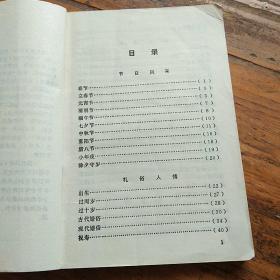 目录
节日风采
春节 (1)
立春节 (5)
元宵节 (7)
清明节 (8)
端午节 (10)
七夕节 (11)
中秋节 (16)
重阳节 (18)
腊八节 (19)
小年夜 (19)
除夕守岁 (20)
礼俗人情
出生 (22)
过周岁 (27)
过十岁 (28)
古代婚俗 (34)
现代婚俗 (40)
祝寿 (40)